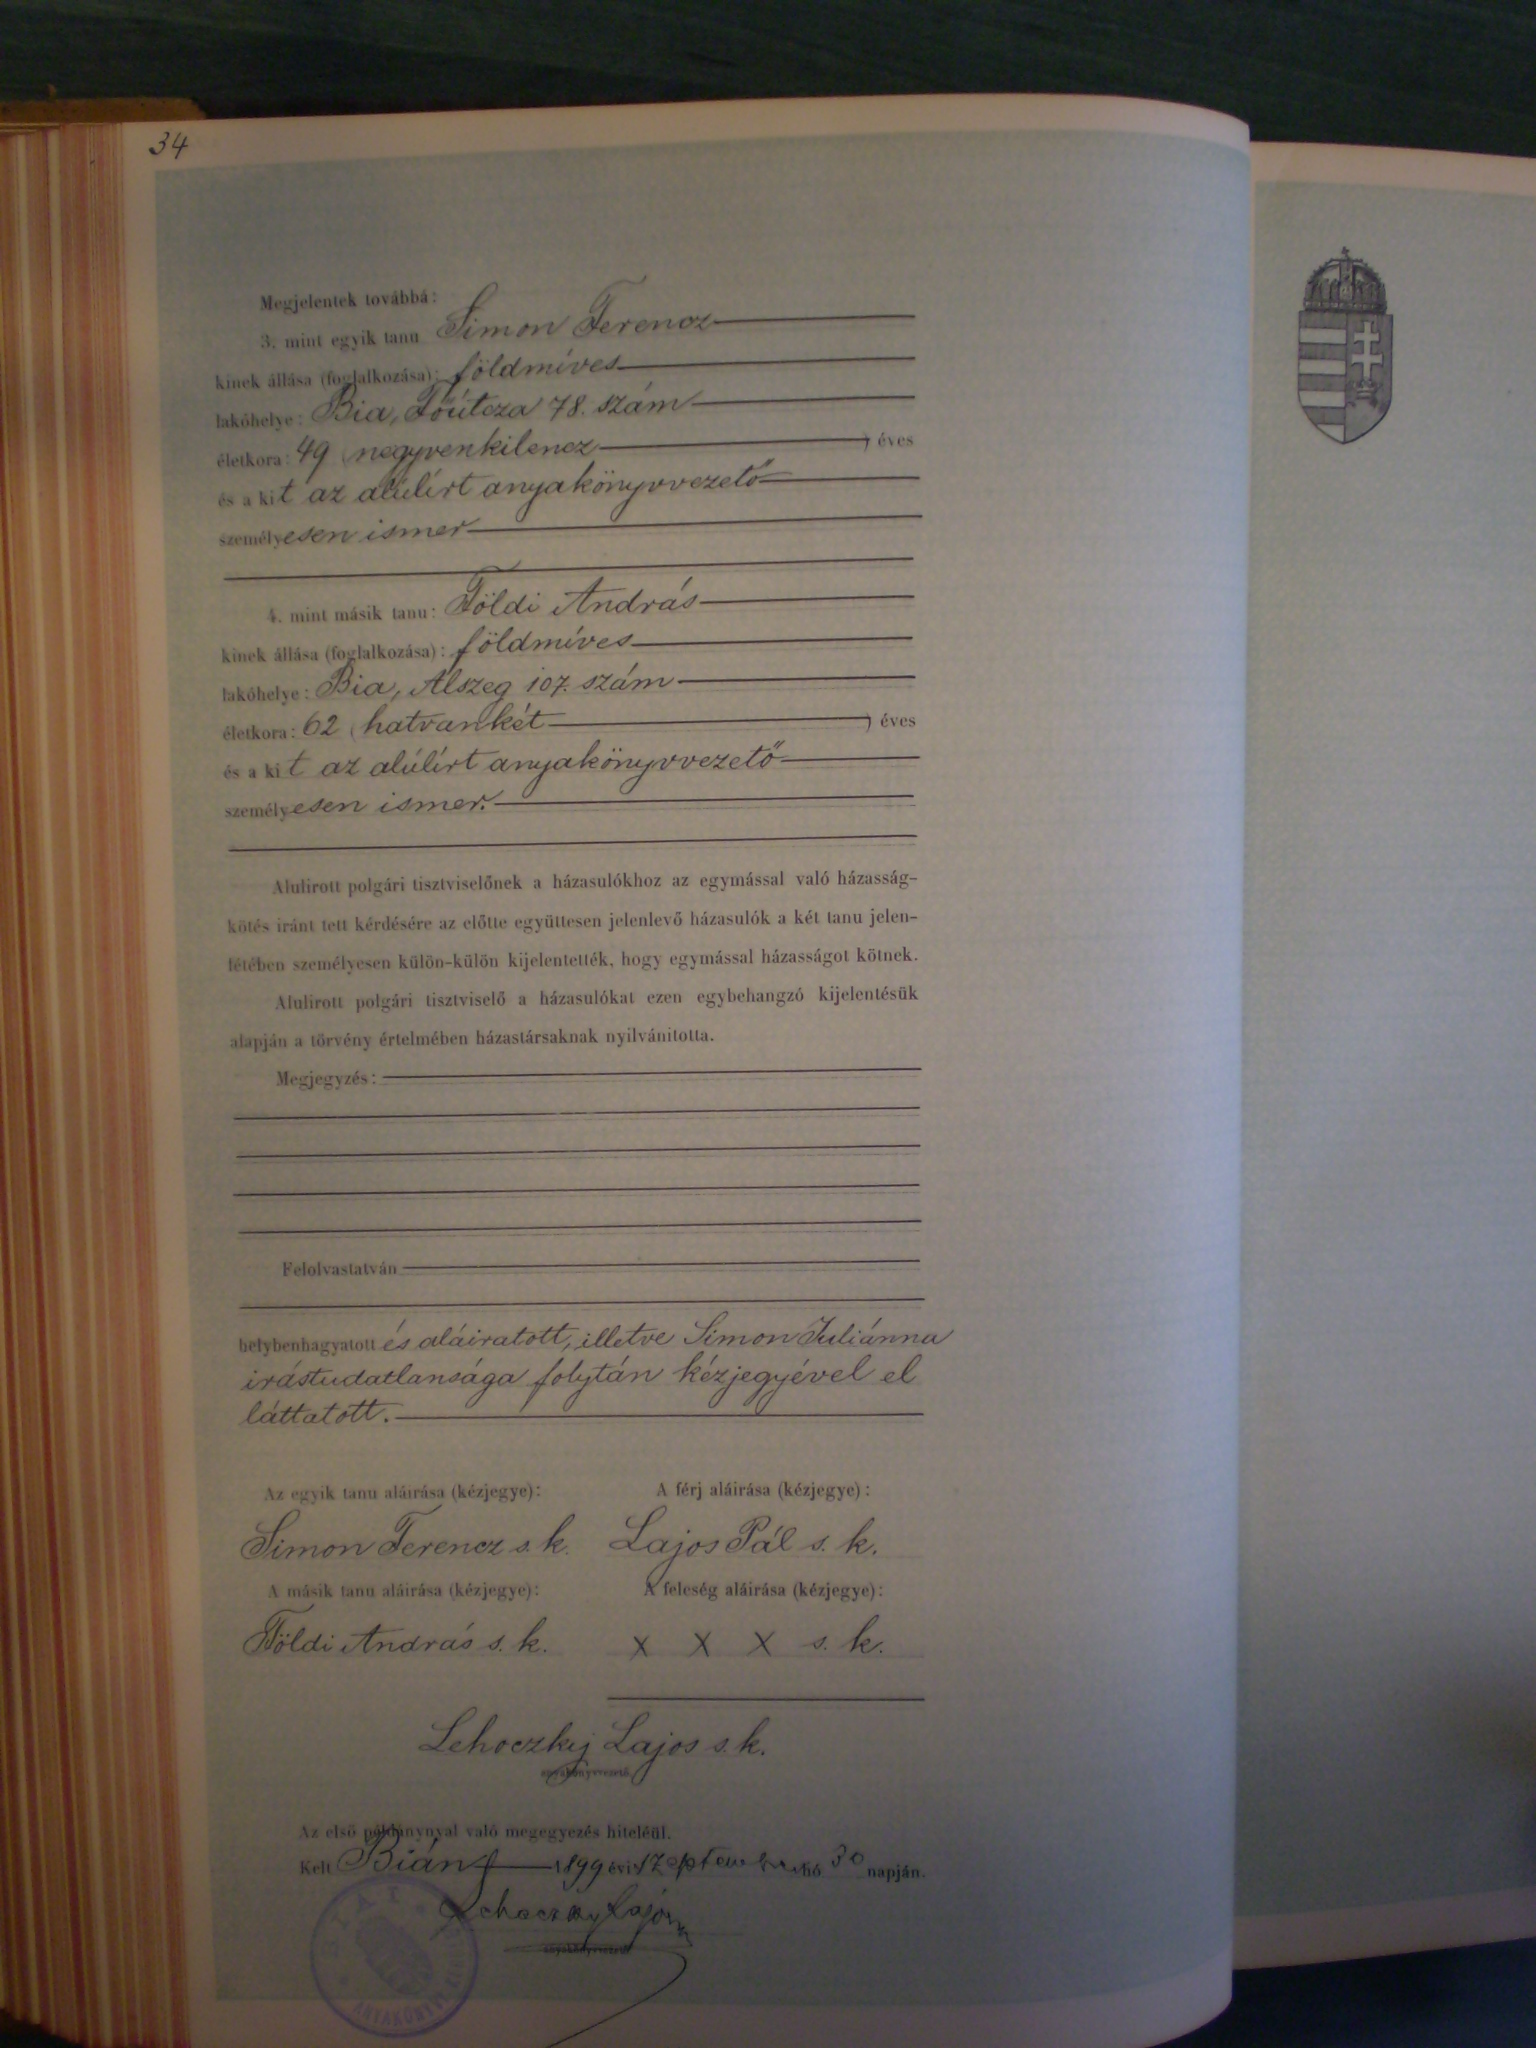 34
Megjelentek továbbá:
3. mint egyik tanu Simon Ferencz
kinek állása (foglalkozása): földmíves
lakóhelye: Bia, Főútcza 78. szám
életkora: 49 (negyvenkilencz) éves
és a kit az alúlírt anyakönyvvezető
személyesen ismer
4. mint másik tanu: Földi András
kinek állása (foglalkozása): földmíves
lakóhelye: Bia, Alszeg 107. szám
életkora: 62 (hatvankét) éves
és a kit az alúlírt anyakönyvvezető
személyesen ismer.
Alulirott polgári tisztviselőnek a házasulókhoz az egymással való házasság-
kötés iránt tett kérdésére az előtte együttesen jelenlevő házasulók a két tanu jelen-
létében személyesen külön-külön kijelentették, hogy egymással házasságot kötnek.
Alulirott polgári tisztviselő a házasulókat ezen egybehangzó kijelentésük
alapján a törvény értelmében házastársaknak nyilvánitotta.
Megjegyzés:
Felolvastatván
helybenhagyatott és aláiratott, illetve Simon Juliánna
irástudatlansága folytán kézjegyével el
láttatott.
Az egyik tanu aláírása (kézjegye): A férj aláirása (kézjegye):
Simon Ferencz s. k. Lajos Pál s. k.
A másik tanu aláirása (kézjegye): A feleség aláirása (kézjegye):
Földi András s. k. X X X s. k.
Lehoczky Lajos s. k.
anyakönyvvezető.
Az első példánynyal való megegyezés hiteléül.
Kelt Bián 1899 évi szeptember hó 30 napján.
Lehoczky Lajos
anyakönyvvezető